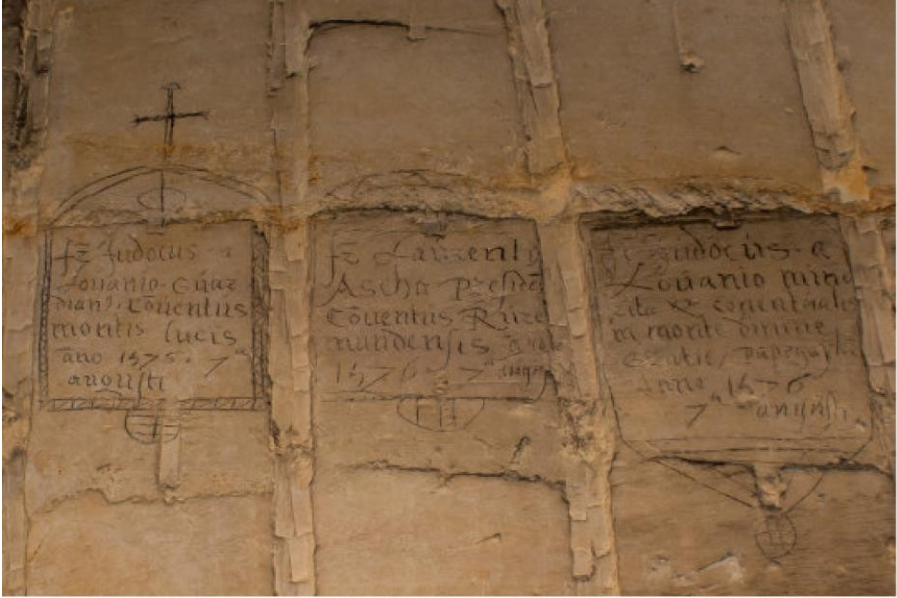 fr Judocus a
Lovanio Guar
dian9 Cōventus
montis lucis
āno 1576. 7ᵃ
augusti
fr Laurenti9
Ascha presidē
Cōventus Rure
mundensis
1576 7ᵃ
fr Judocus a
Lovanio mino
rita conventualis
in monte divine
Anno 1576
7ᵃ augusti